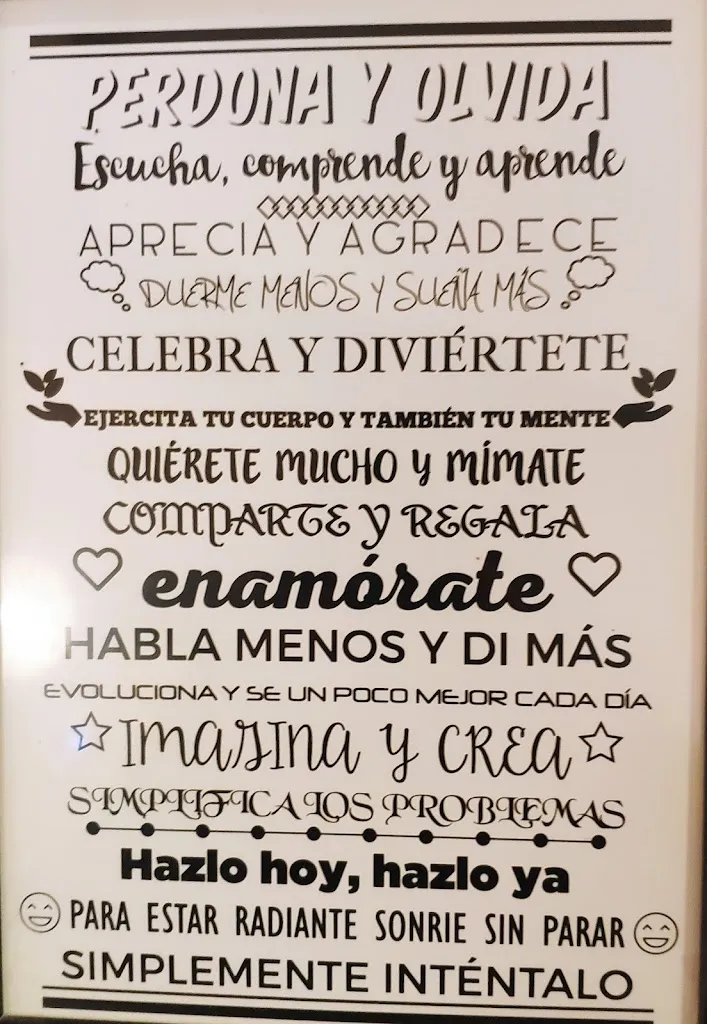 PERDONA Y OLVIDA
Escucha, comprende y aprende
APRECIA Y AGRADECE
DUERME MENOS Y SUEÑA MÁS
CELEBRA Y DIVIÉRTETE
EJERCITA TU CUERPO Y TAMBIÉN TU MENTE
QUIÉRETE MUCHO y MÍMATE
COMPARTE Y REGALA
enamórate
HABLA MENOS Y DI MÁS
EVOLUCIONA Y SE UN POCO MEJOR CADA DÍA
IMAGINA Y CREA
SIMPLIFICA LOS PROBLEMAS
Hazlo hoy, hazlo ya
PARA ESTAR RADIANTE SONRIE SIN PARAR
SIMPLEMENTE INTÉNTALO